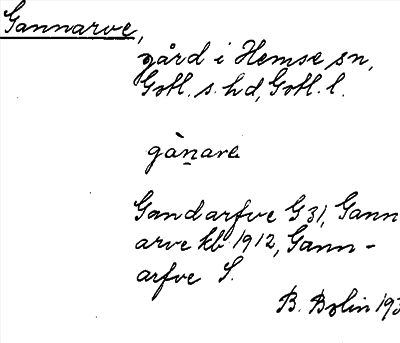 Gannarve,
gård i Hemse sn,
Gotl. s. hd, Gotl. l.
gànarɛ
Gandarfve G 31, Gann
arve kb 1912, Gann-
arfve S.
B. Bolin 193